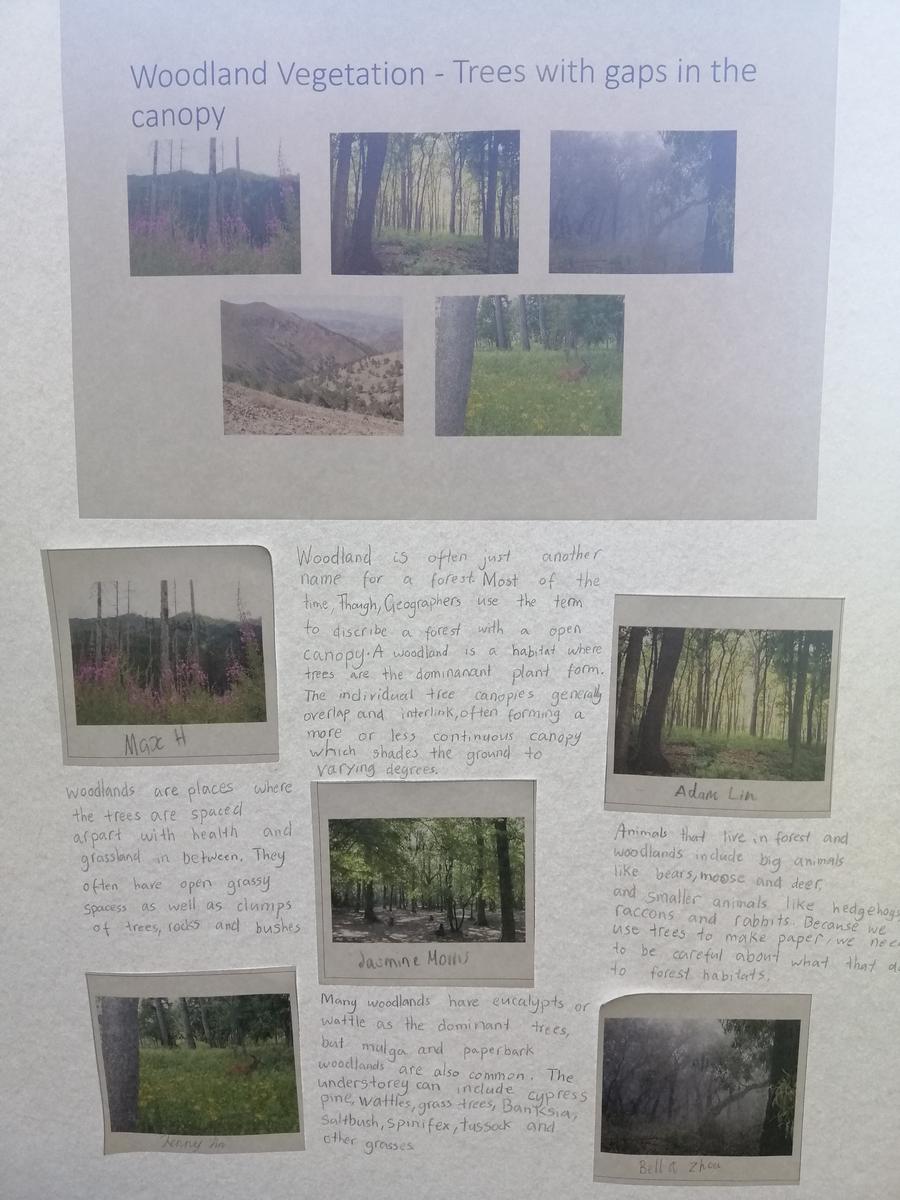 Woodland Vegetation - Trees with gaps in the
canopy
Max H
Woodland is often just another
name for a forest. Most of the
time, Though, Geographers use the term
to discribe a forest with a open
canopy. A woodland is a habitat where
trees are the dominanant plant form.
The individual tree canopies generally
overlap and interlink, often forming a
more or less continuous canopy
which shades the ground to
varying degrees.
Adam Lin
woodlands are places where
the trees are spaced
arpart with health and
grassland in between. They
often have open grassy
spacess as well as clamps
of trees, rocks and bushes
Jasmine Morris
Animals that live in forest and
woodlands include big animals
like bears, moose and deer,
and smaller animals like hedgehogs
raccons and rabbits. Because we
use trees to make paper, we
to be careful about what that
to forest habitats.
Jenny
Many woodlands have eucalypts or
wattle as the dominant trees,
but mulga and paperbark
woodlands are also common. The
understorey can include cypress
pine, wattles, grass trees, Banksia,
Saltbush, Spinifex, tussock and
other grasses
Bella Zhou